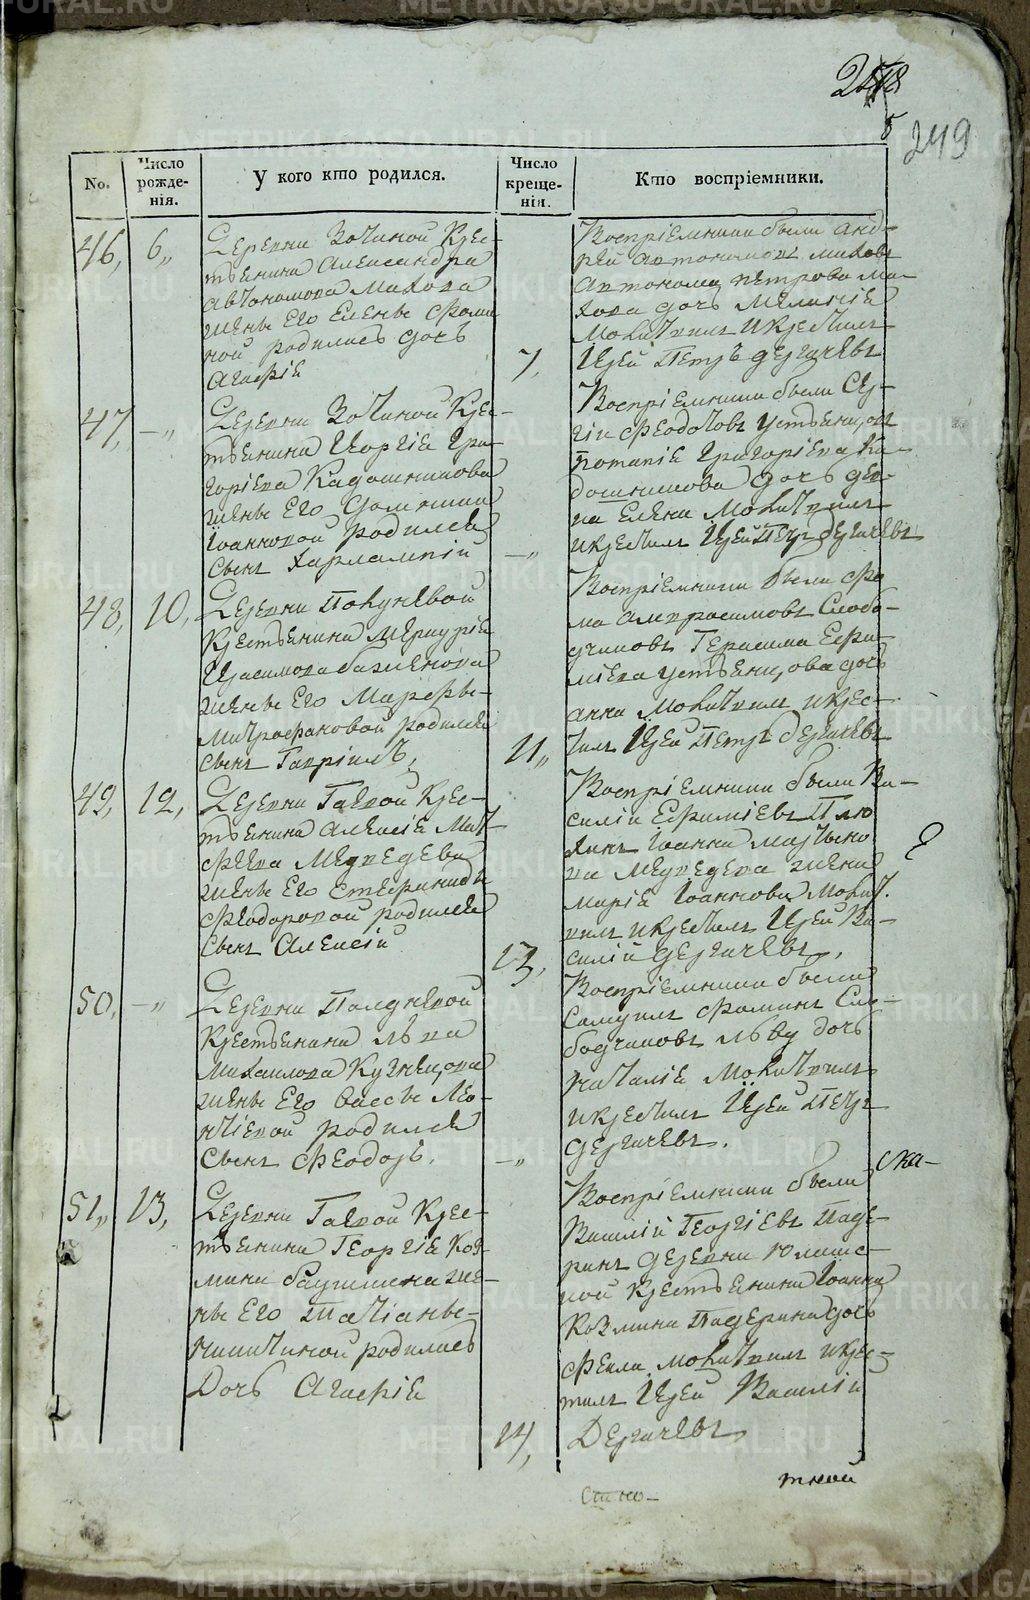 249
No.
Число рожде-
нія.
У кого кто родился.
Число креще-
нія.
Кто воспріемники.
46, 6,,
Деревни Зотиной Крес-
тьянина Александра
Автономова Махова
жены Его Елены Фоми
ной родилась дочь
Агафія
7,
Воспріемники были Анд-
рей Автономовъ Маховъ
Автонома Петрова Ма-
хова дочь Меланія
Молитвилъ и крестилъ
Іерей Петръ Дергачевъ
47, — „
Деревни Зотиной Крес-
тьянина Георгія Гри-
горіева Кадошникова
жены Его
Іоанновой родился
Сынъ Харлампій
— „
Воспріемники были Сер-
гій Феодотовъ
Потапія Григоріева Ка-
дошникова дочь Дев-
ка Елена Молитвилъ
и крестилъ Іерей Петръ Дергачевъ
48, 10,
Деревни
Крестьянина Меркурія
жены Его Марфы
Митрофановой родился
Сынъ Гавріилъ,
11,,
Воспріемники были Фо
ма Слобо-
дчиковъ Герасима Ефи-
міева дочь
Анна Молитвилъ и крес-
тилъ Іерей Петръ Дергачевъ
49, 12,
Деревни Гаевой Крес-
тьянина Алексія Мат-
феева Медведева
жены Его Стефаниды
Феодоровой родился
Сынъ Алексій
13,
Воспріемники были Ва-
силій Ефиміевъ Плю
хинъ Іоанна Мартыно
ва Медведева жена
Марія Іоаннова Молит.
вилъ и крестилъ Іерей Ва-
силій Дергачевъ,
50, — „
Деревни Полдневой
Крестьянина Льва
Михаилова Кузнецова
жены Его Вассы Лео-
нтіевой родился
Сынъ Феодоръ.
— „
Воспріемники были
Самуилъ Фоминъ Сло-
бодчиковъ Льву дочь
Наталія Молитвилъ
и крестилъ Іерей Петръ
Дергачевъ.
51,, 13,
Деревни Гаевой Крес-
тьянина Георгія Коз-
мина жe-
ны Его Татіаны
Никитиной родилась
Дочь Агафія
14,
Воспріемники были
Василій Георгіевъ Паде-
ринъ Деревни
Крестьянина Іоанна
Козмина Падерина дочь
Фекла Молитвилъ и крес-
тилъ Іерей Василій
Дергачевъ
METRIKI.GASO-URAL.RU